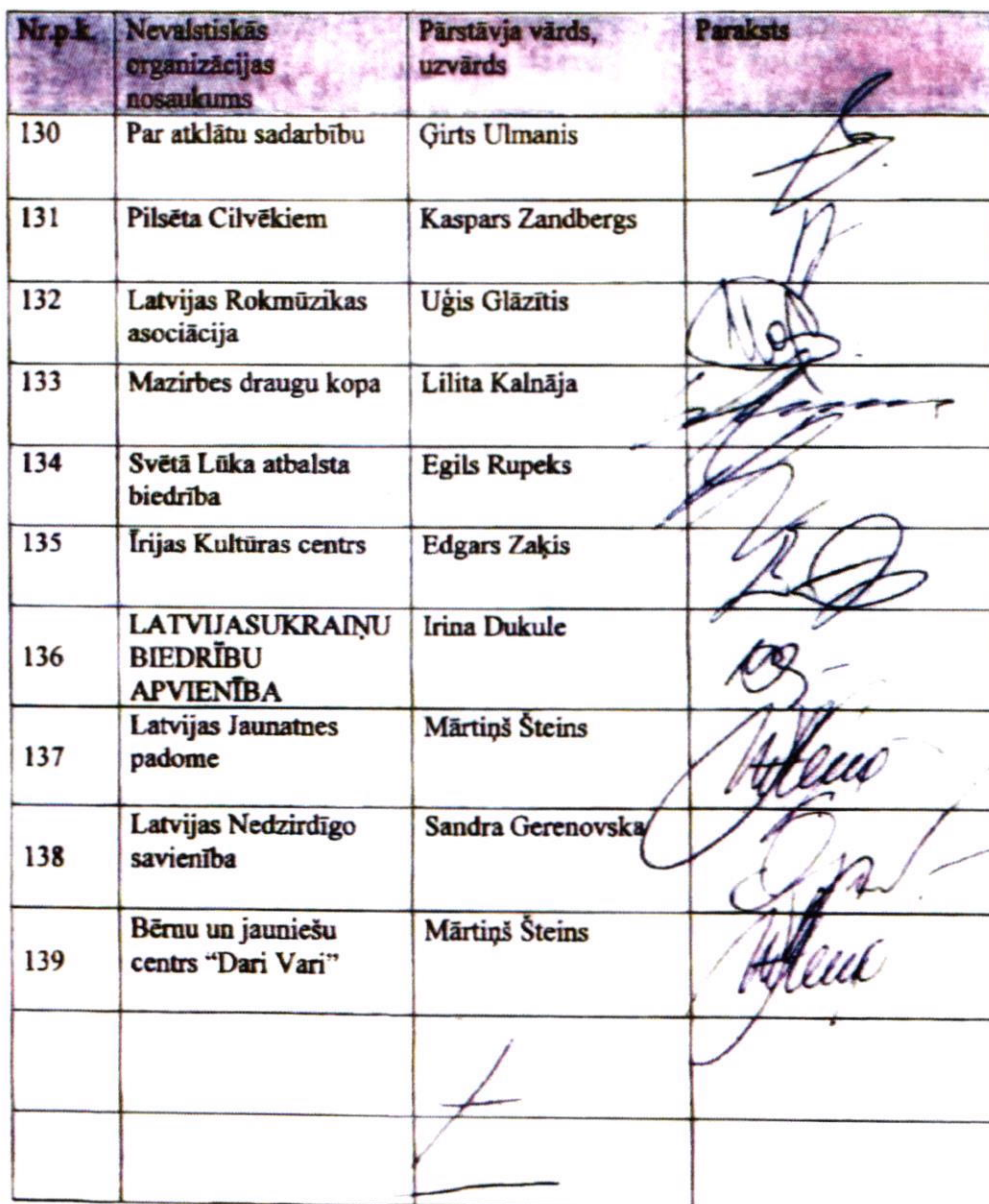 Nr.p.k. Nevalstiskās organizācijas nosaukums Pārstāvja vārds, uzvārds Paraksts
130 Par atklātu sadarbību Ģirts Ulmanis
131 Pilsēta Cilvēkiem Kaspars Zandbergs
132 Latvijas Rokmūzikas asociācija Uģis Glāzītis
133 Mazirbes draugu kopa Lilita Kalnāja
134 Svētā Lūka atbalsta biedrība Egils Rupeks
135 Īrijas Kultūras centrs Edgars Zaķis
136 LATVIJASUKRAIŅU BIEDRĪBU APVIENĪBA Irina Dukule
137 Latvijas Jaunatnes padome Mārtiņš Šteins
138 Latvijas Nedzirdīgo savienība Sandra Gerenovska
139 Bērnu un jauniešu centrs “Dari Vari” Mārtiņš Šteins